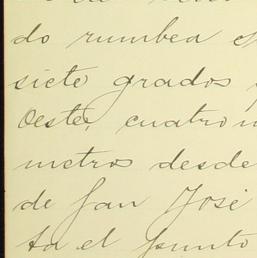 do rumbea
siete grados
Oeste, cuatro
metros desde
de San José
ta el punto